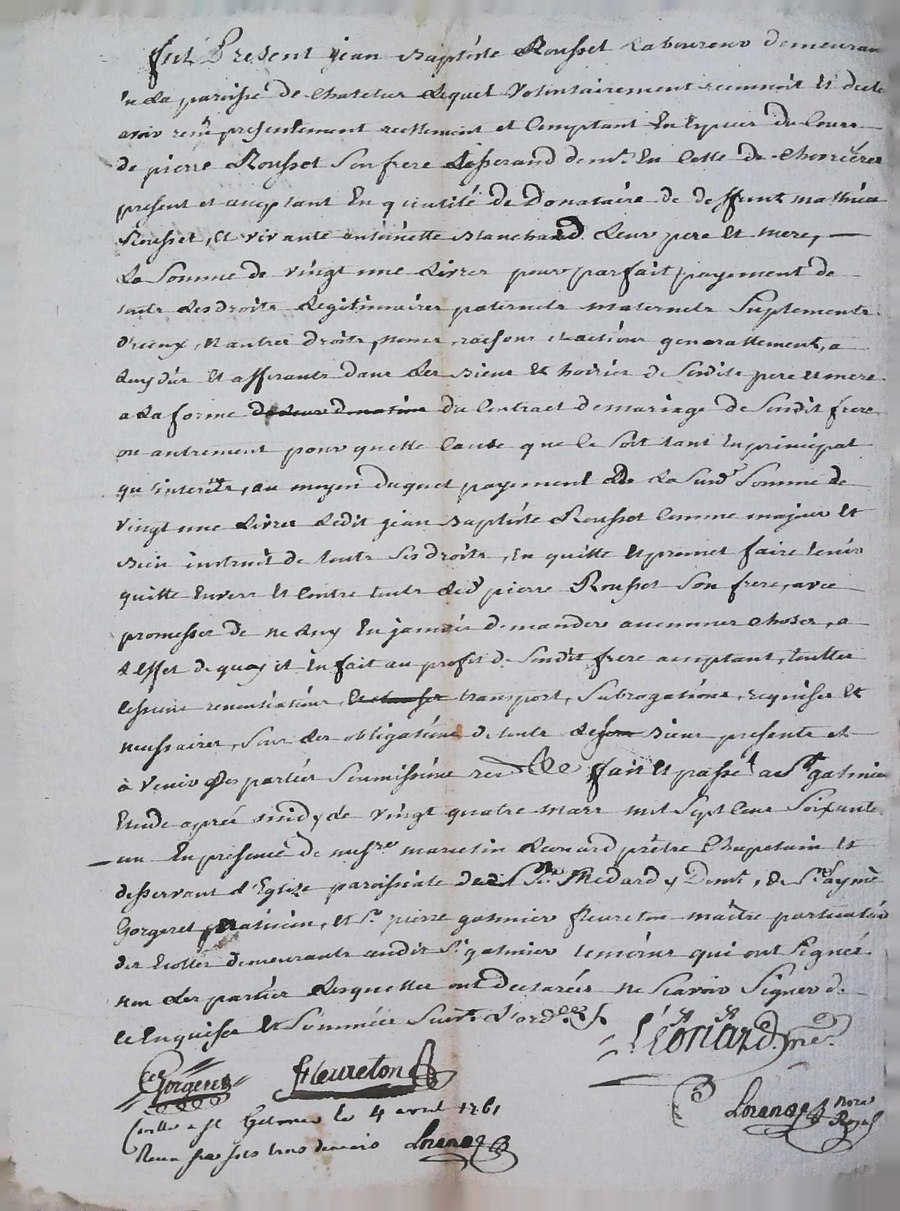 fut Present jean Baptiste Rousset Laboureur demeuran
en La paroisse de Chatelus Lequel Volontairement reconnoit et declare
avoir reçu presentement reellement et Comptant En Especes du Cours
de pierre Rousset Son frere tisserand demt. En Celle de Chevrieres
present et acceptant En qualité de Donataire de deffunt mathieu
Rousset, et vivante antoinette Blanchard Leur pere et mere,
La Somme de vingt une Livres pour parfait payement de
touts Les droits Legitimaires paternels maternels Suplements
d'iceux, et autres droits, noms, raisons et actions generallement, a
Luy dus et afferants dans Les Biens et hoiries de Sesdits pere et mere
a La forme de Leur donation du Contract de mariage de Sondit frere
ou autrement pour quelle Cause que Ce Soit tant En principal
qu'interêts, au moyen duquel payement de La Susd. Somme de
vingt une Livres Ledit jean Baptiste Rousset Comme majeur et
Bien instruit de touts Ses droits, En quitte et promet faire tenir
quitte Envers et Contre touts Led. pierre Rousset Son frere, avec
promesses de ne Luy En jamais demander aucunnes Choses, a
L'effet de quoy il En fait au profit de Sondit frere acceptant, touttes
Cessions renontiations, transport, Subrogations, requises et
necessaires, Sous Les obligations de touts Biens presents et
à venir des parties Soumissions fait et passé a St. galmier
Etude après midy Le vingt quatre mars mil Sept Cens Soixante
un En presence de messire Leonard prêtre Chapelain et
desservant L'Eglise paroissiale de St. Medard y Demt. de Sr.
Gorgeret praticien, et Sr. pierre galmier fleureton maître particulier
des Ecolles demeurants audit St. galmier temoins qui ont Signés
non Les parties Lesquelles ont declarées ne Scavoir Signer de
Ce Enquises et Sommées Suivt. L'ordce.
Léonard ptre.
Gorgeret
fleureton
Lorange Nore Royal
Conllé a St Galmier le 4 avril 1761
Receu Lorange